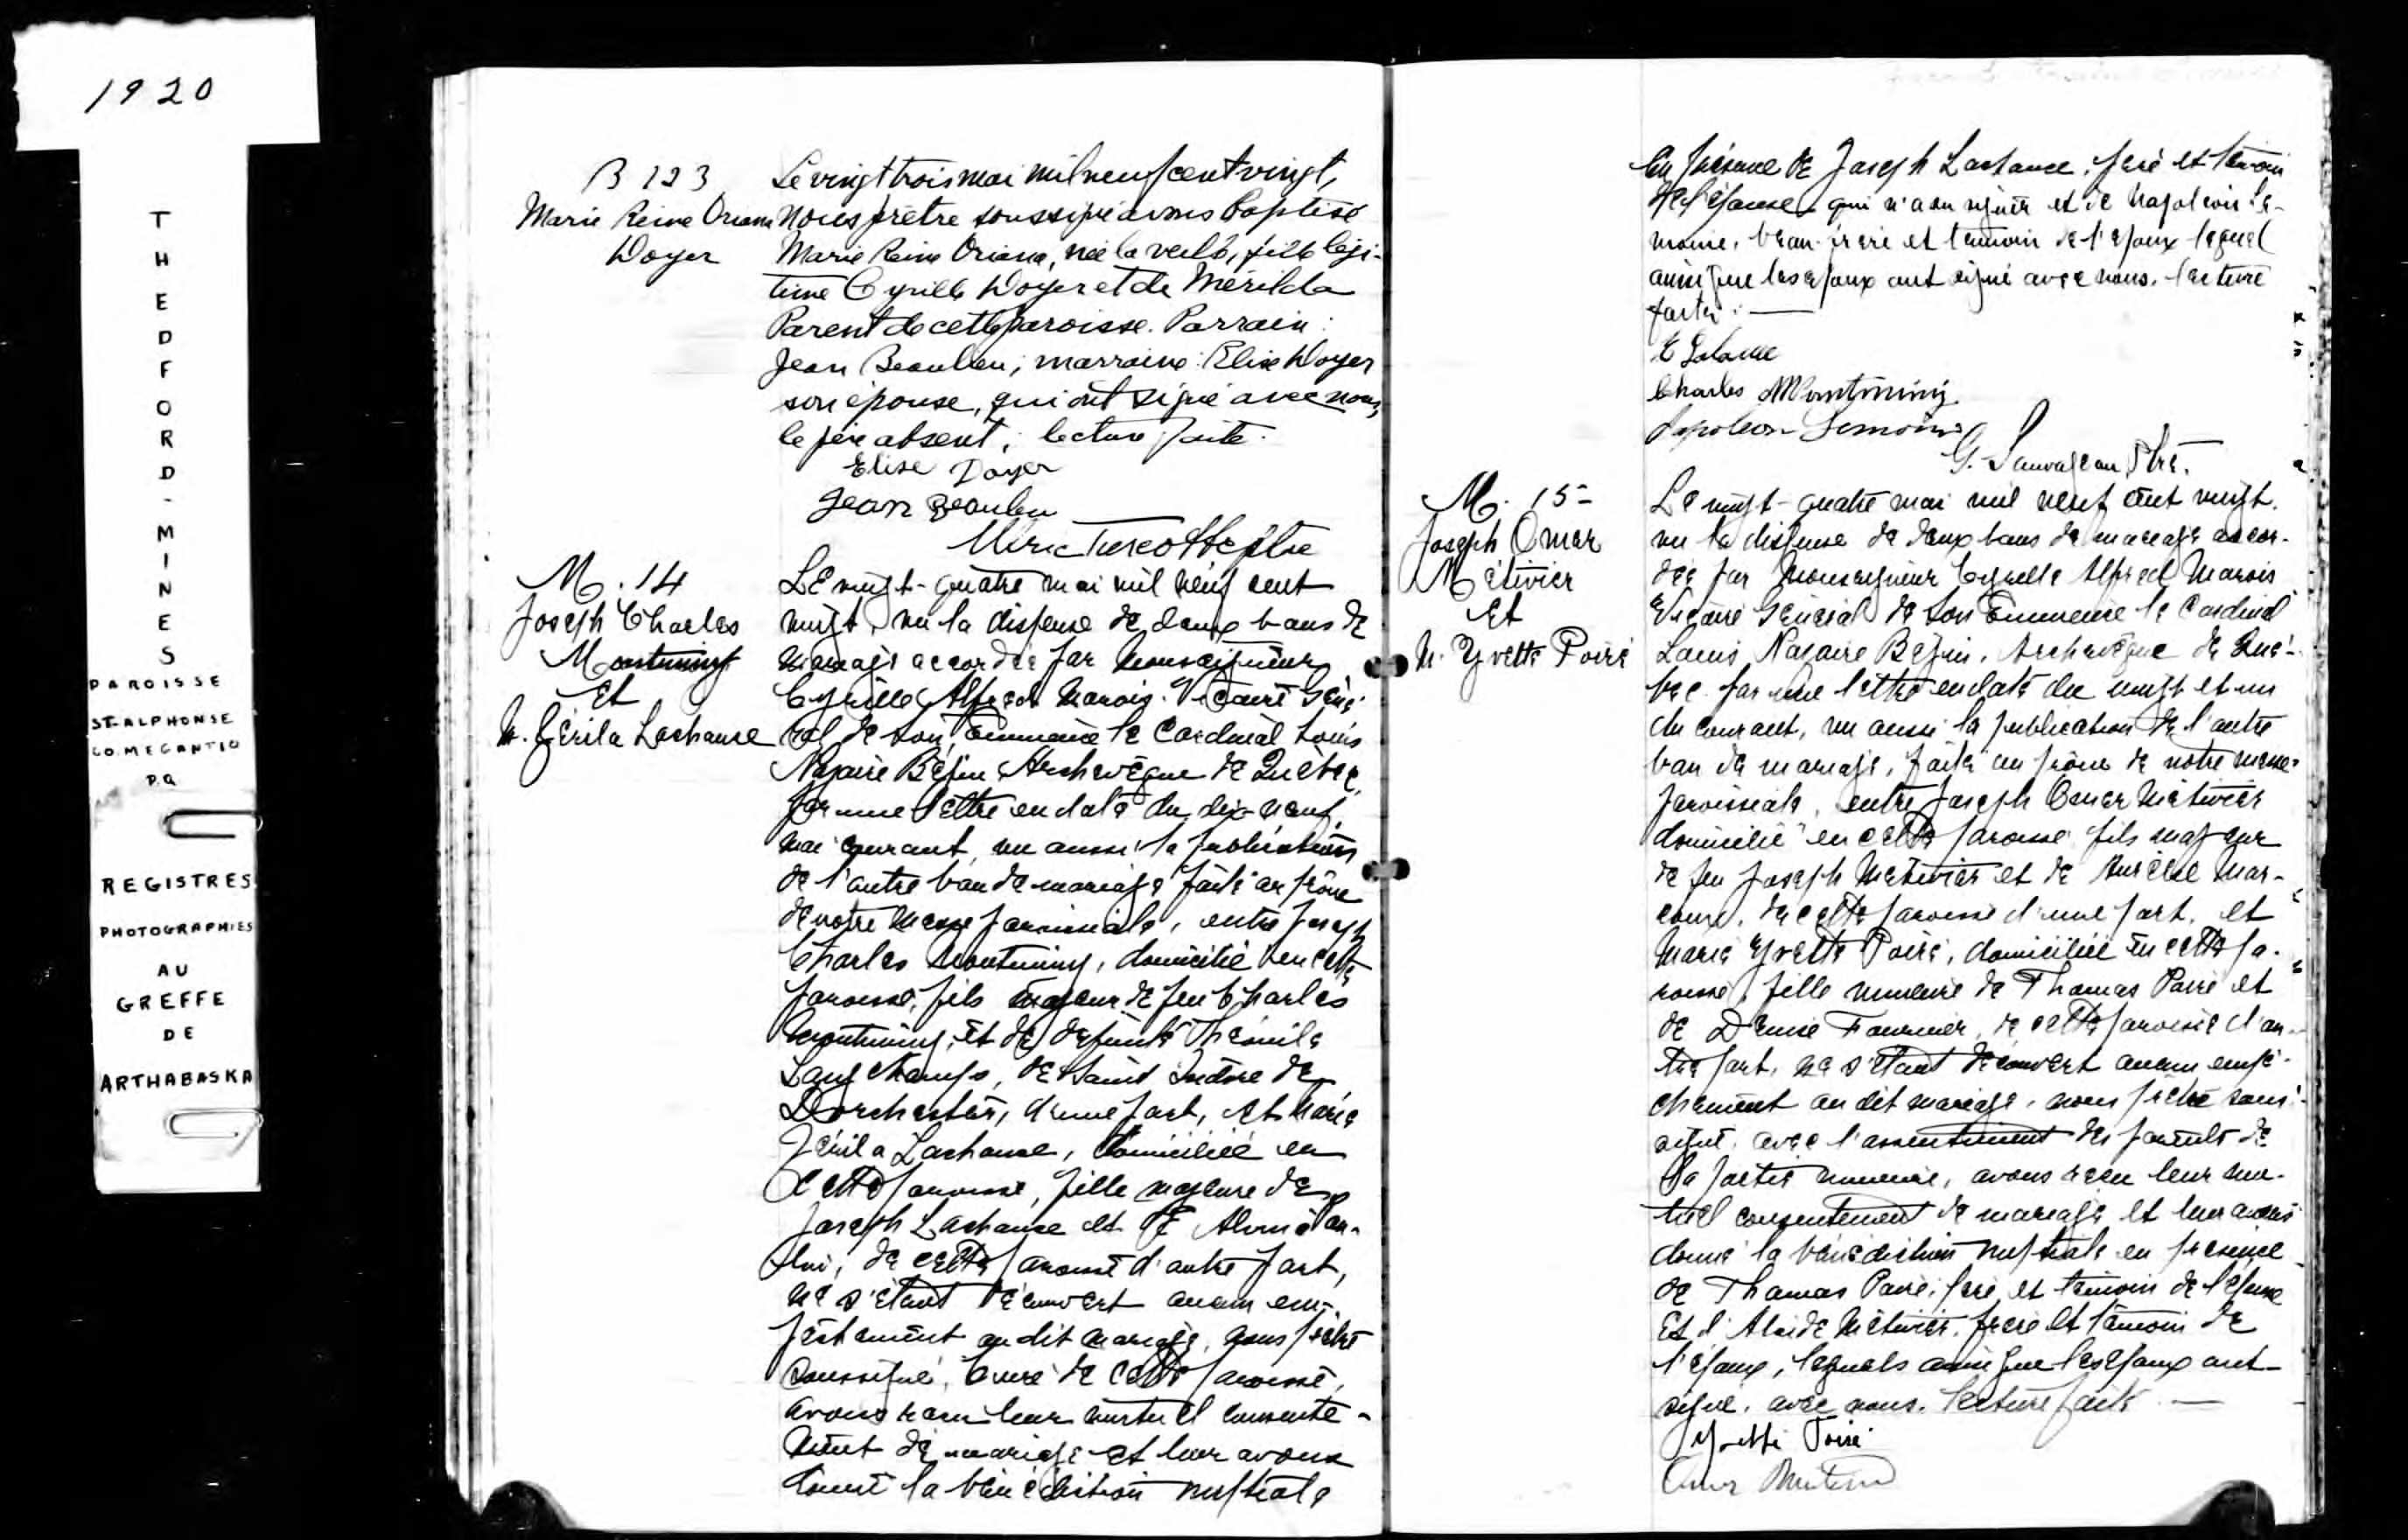 1920
THEDFORD-MINES
PAROISSE
ST-ALPHONSE
CO. MEGANTIC
P.Q
REGISTRES
PHOTOGRAPHIES
AU
GREFFE
DE
ARTHABASKA
B 123
Marie Reine Oriana
Doyer
Le vingt trois mai mil neuf cent vingt,
nous prêtre soussigné avons baptisé
Marie Reine Oriana, née la veille, fille légi-
time Cyrille Doyer et de Mérilda
Parent de cette paroisse. Parrain :
Jean Beaulieu ; marraine : Elise Doyer
son épouse, qui ont signé avec nous,
le père absent ; lecture faite.
Elise Doyer
Jean Beaulieu
Turcotte ptre
M. 14
Joseph Charles
Montminy
Et
M. Lachance
Le vingt-quatre mai mil neuf cent
vingt, vu la dispense de deux bans de
mariage accordée par Monseigneur
Cyrille Alfred Marois. Vicaire Géné-
ral de Son Eminence le Cardinal Louis
Nazaire Bégin Archevêque de Québec,
par une lettre en date du dix-neuf
mai courant, vu aussi la publication
de l'autre ban de mariage faite au prône
de notre messe paroissiale, entre Joseph
Charles Montminy, domicilié en cette
paroisse, fils majeur de feu Charles
Montminy et de défunte
Langchamps, de Saint Isidore de
Dorchester, d'une part, et Marie
Lachance, domiciliée en
cette paroisse, fille majeure de
Joseph Lachance et de
de cette paroisse d'autre part,
ne s'étant découvert aucun em-
pêchement au dit mariage, nous prêtre
soussigné, Curé de cette paroisse,
avons reçu leur mutuel consente-
ment de mariage et leur avons
donné la bénédiction nuptiale
en présence de Joseph Lachance, père et témoin
de l'épouse qui n'a su signer et de Napoléon Le-
moine, beau-frère et témoin de l'époux lequel
ainsi que les époux ont signé avec nous. lecture
faite. —
Charles Montminy
Napoleon Lemoine
G. Sauvageau Ptre.
M. 15
Joseph Omer
Métivier
Et
M. Yvette Poiré
Le vingt-quatre mai mil neuf cent vingt.
vu la dispense de deux bans de mariage accor-
dée par Monseigneur Cyrille Alfred Marois
Vicaire Général de Son Eminence le Cardinal
Louis Nazaire Bégin, Archevêque de Qué-
bec par une lettre en date du vingt et un
du courant, vu aussi la publication de l'autre
ban de mariage, faite au prône de notre messe
paroissiale, entre Joseph Omer Métivier
domicilié en cette paroisse fils majeur
de feu Joseph Métivier et de Mar-
coux, de cette paroisse d'une part, et
Marie Yvette Poiré, domiciliée en cette pa-
roisse, fille mineure de Thomas Poiré et
de Fournier, de cette paroisse d'au-
tre part, ne s'étant découvert aucun empê-
chement au dit mariage, nous prêtre sous-
signé, avec l'assentiment des parents de
la partie mineure, avons reçu leur mu-
tuel consentement de mariage et leur avons
donné la bénédiction nuptiale en présence
de Thomas Poiré, père et témoin de l'épouse
et d'Alcide Métivier, frère et témoin de
l'époux, lesquels ainsi que les époux ont
signé, avec nous. lecture faite —
Yvette Poiré
Omer Métivier